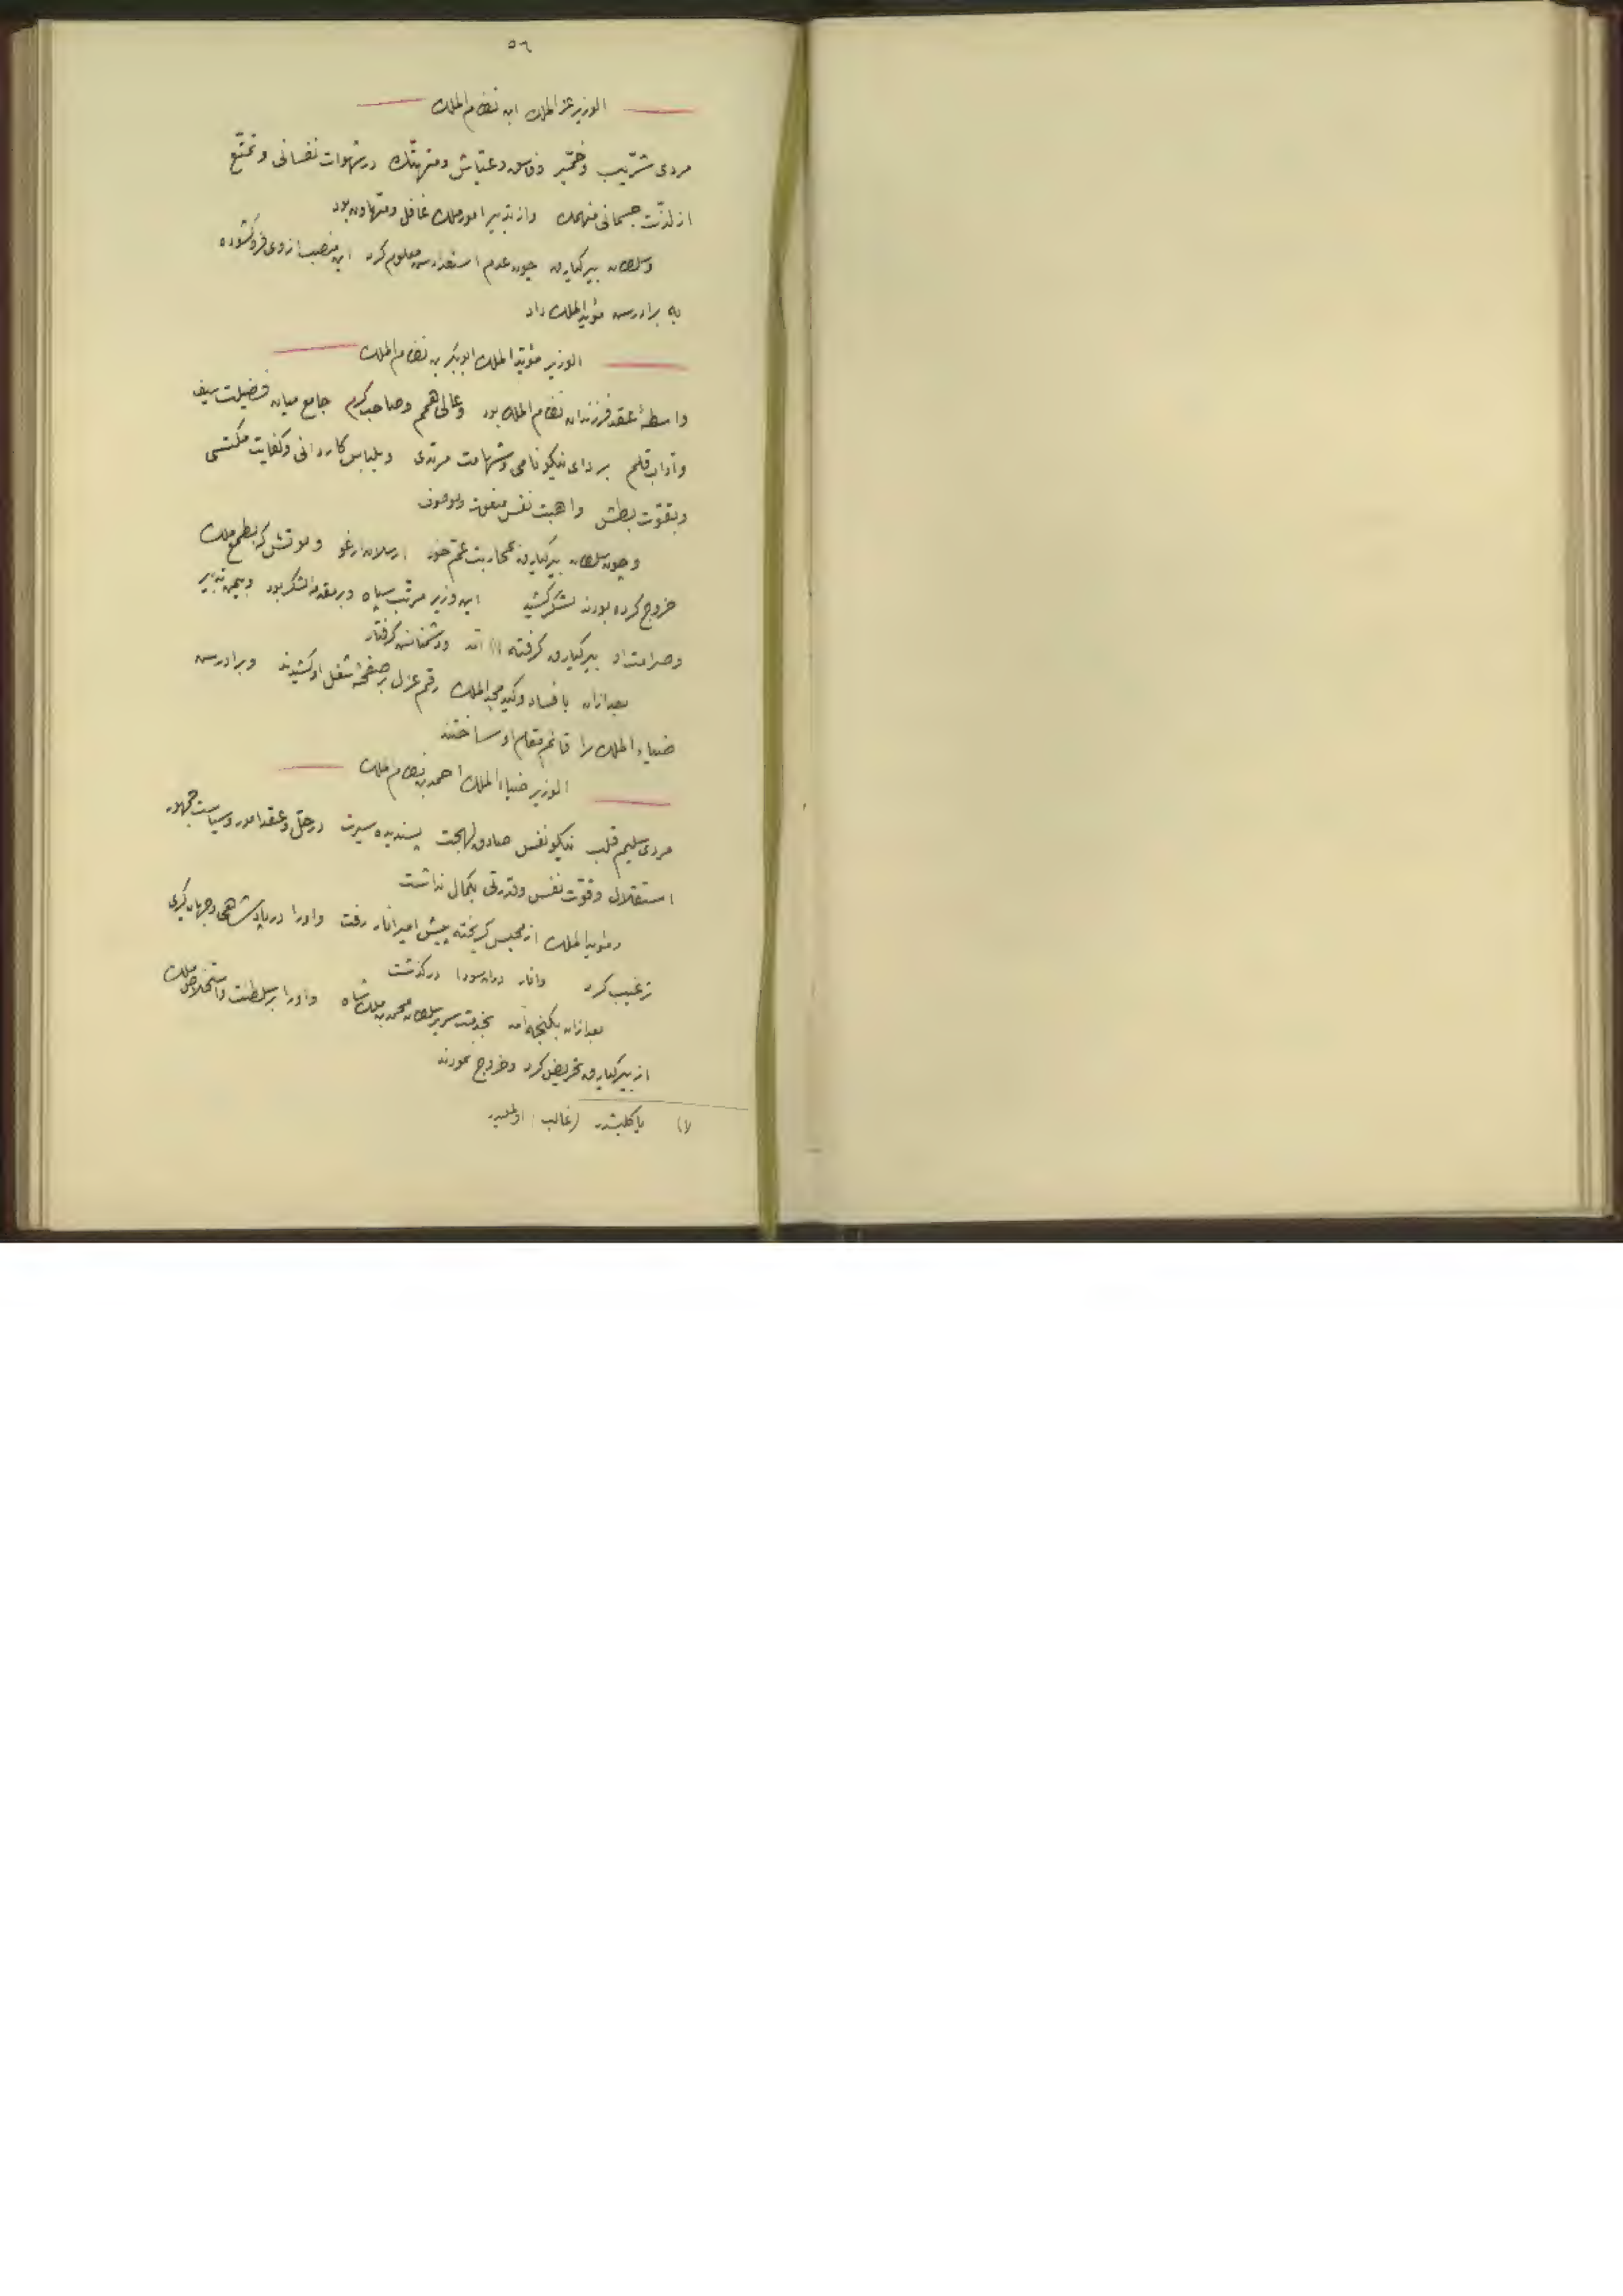 ٥٦
الوزیر عز الملك ابن نظام الملك
مردی شرّیب وخمّیر وفاسق وعیّاش ومتهتّك در شهوات نفسانی وتمتّع
از لذّت جسمانی منهمك واز تدبیر امور ملك غافل ومتهاون بود
وسلطان بیركیارق چون عدم استعدادش معلوم كرد این منصب از وی فرو كشوده
به برادرش مؤید الملك داد
الوزیر مؤیّد الملك ابوبكر بن نظام الملك
واسطهٔ عقد فرزندان نظام الملك بود وعالی همم وصاحب كرم جامع میان فضیلت سیف
وآداب قلم بردای نیكو نامی وشهامت مرتدی وبلباس كاردانی وكفایت مكتسی
وبقوّت بطش واهبت نفس منعوت وموصوف
وچون سلطان بیركیارق بمحاربت عمّ خود ارسلان ارغو وتتش كه بطمع ملك
خروج كرده بودند لشكر كشید این وزیر مرتّب سپاه وبر مقدمهٔ لشكر بود وبیمن تدبیر
وصرامت او بیركیارق گرفته (١) آمد ودشمنانش گرفتار
بعد ازان بافساد وكید مجد الملك رقم عزل بر صفحهٔ شغل او كشیدند وبرادرش
ضیاء الملك را قائم مقام او ساختند
الوزیر ضیاء الملك احمد بن نظام الملك
مردی سلیم قلب نیكو نفس صادق لهجت پسندیده سیرت در حلّ وعقد امور وسیاست جمهور
استقلال وقوّت نفس وقدرتی بكمال نداشت
ومؤید الملك از محبس گریخته پیش امیر انار رفت واورا در پادشاهی وجهان گیری
ترغیب كرد وانار در آن سودا در گذشت
بعد ازان بگنجه آمد بخدمت سریر سلطان محمد بن ملكشاه واورا بر سلطنت واستخلاص ملك
از بیركیارق تحریض كرد وخروج نمودند
(١) یاكلشدر (غالب) اولملیدر